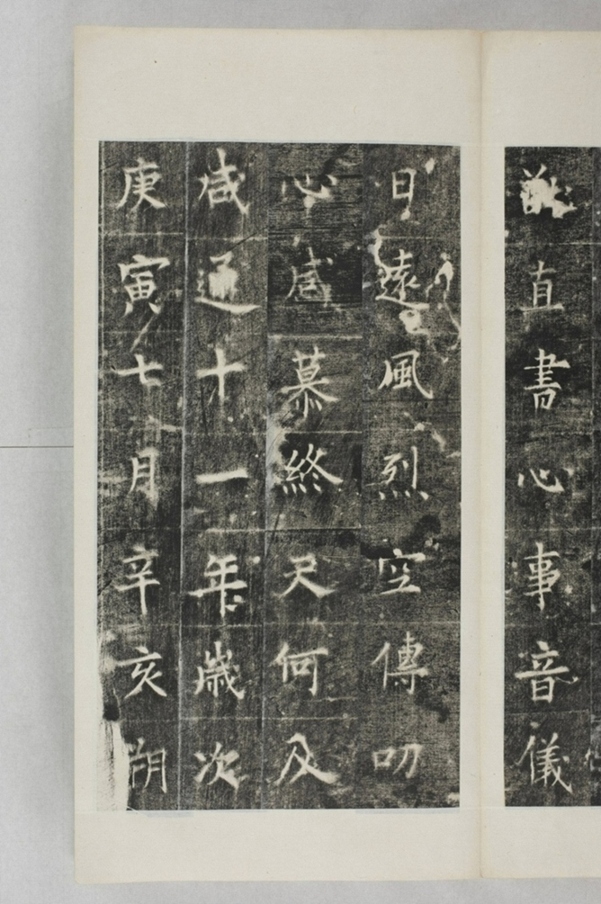 直書心事音儀
日遠風烈空傳叨
心感慕終天何及
咸通十一年歲次
庚寅七月辛亥朔